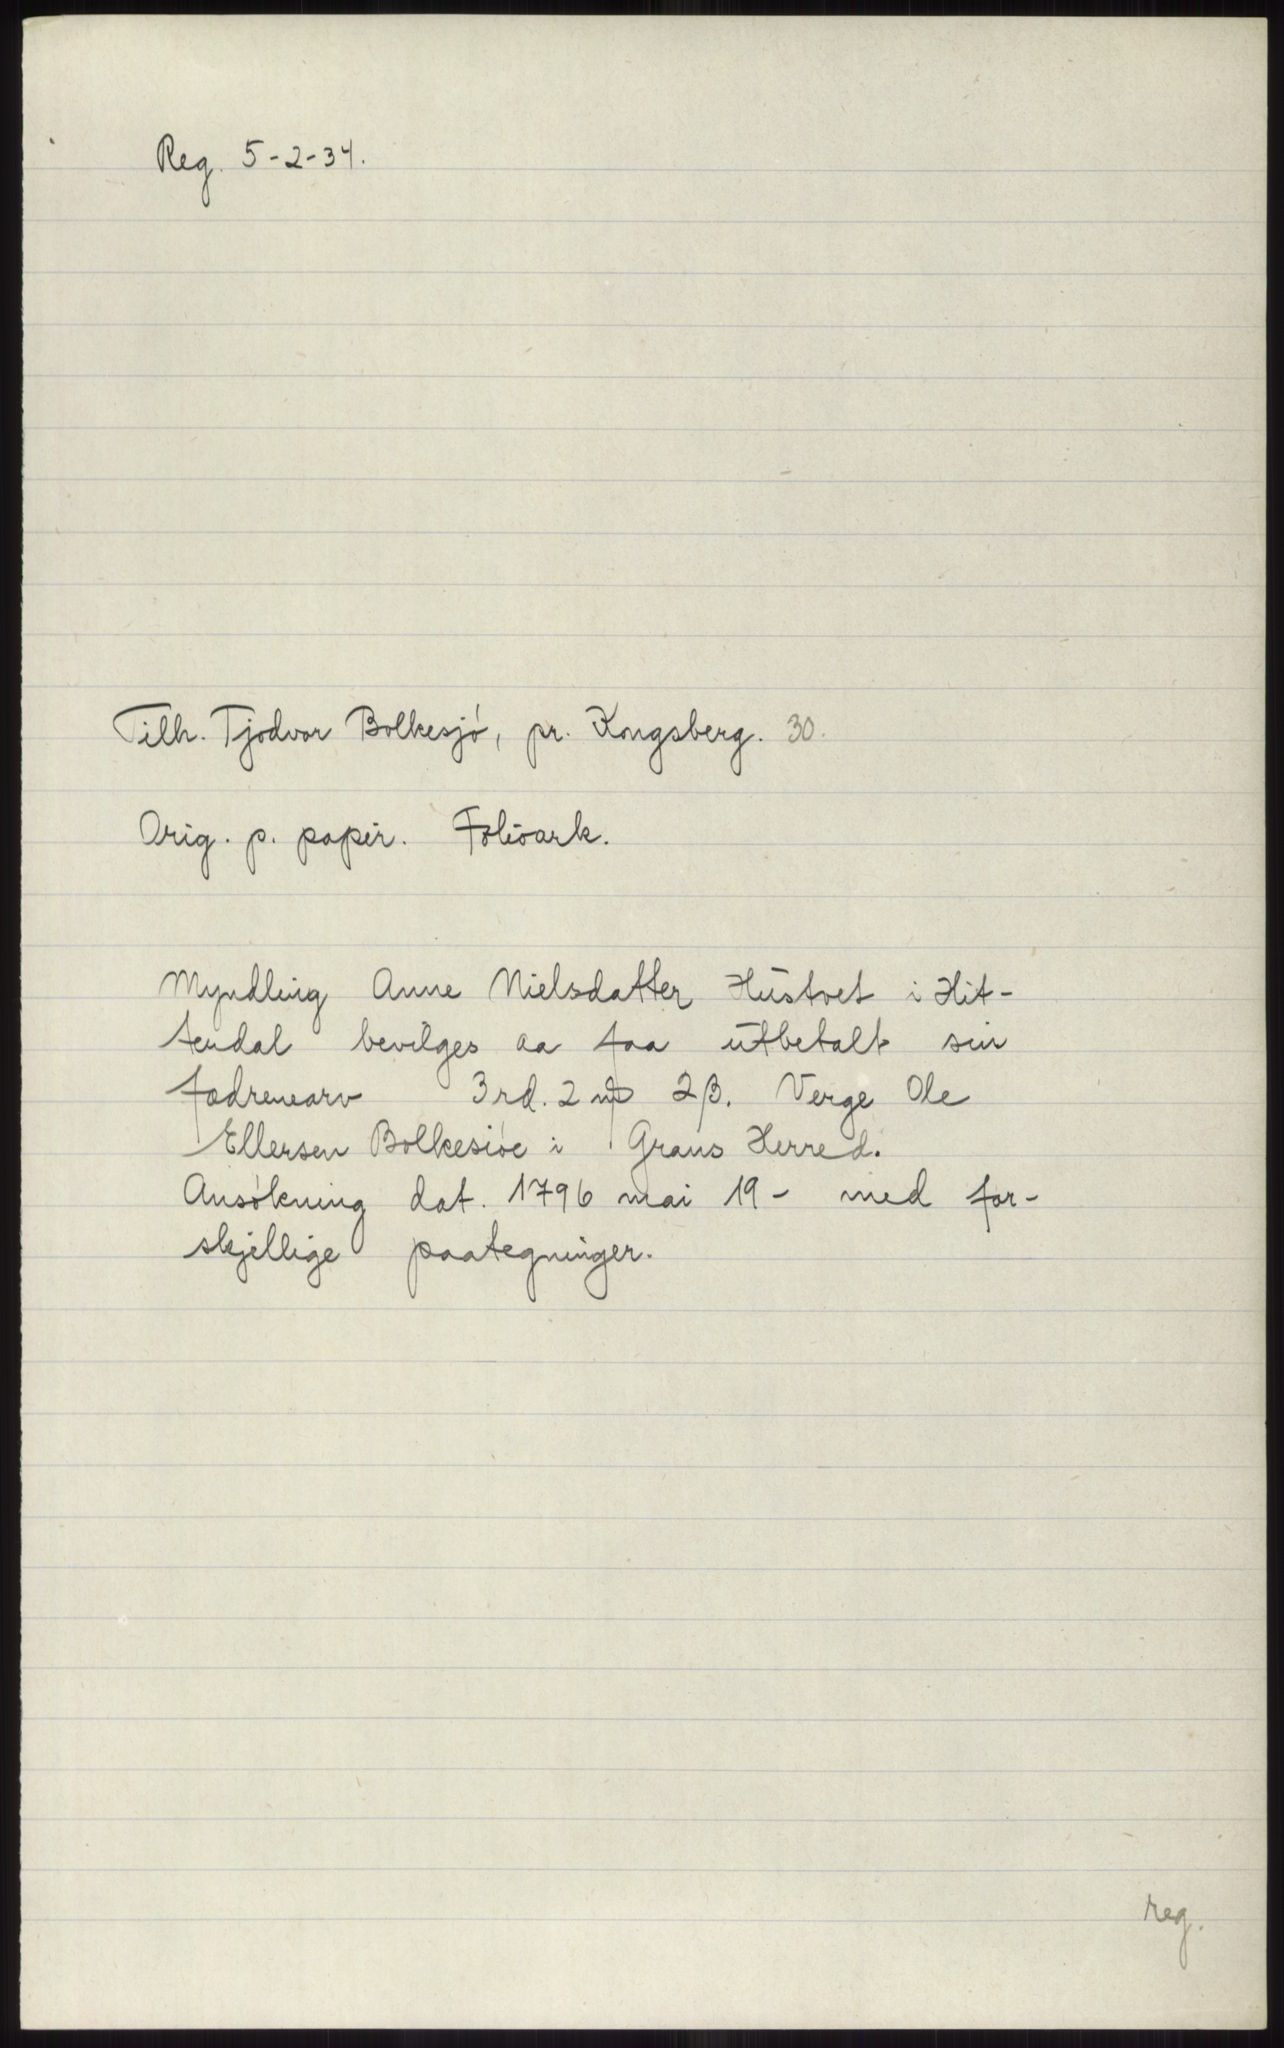 Reg. 5-2-34.
Tilh. Tjodvor Bolkesjø, pr. Kongsberg. 30.
Orig. p. papir. Folioark.
Myndling Anne Nielsdatter Hustvet i Hit-
tendal bevilges aa faa utbetalt sin
fædrenearv 3 rd. 2 ₥ 2 β. Verge Ole
Ellersen Bolkesiøe i Grans Herred.
Ansøkning dat. 1796 mai 19 - med for-
skjellige paategninger.
reg.